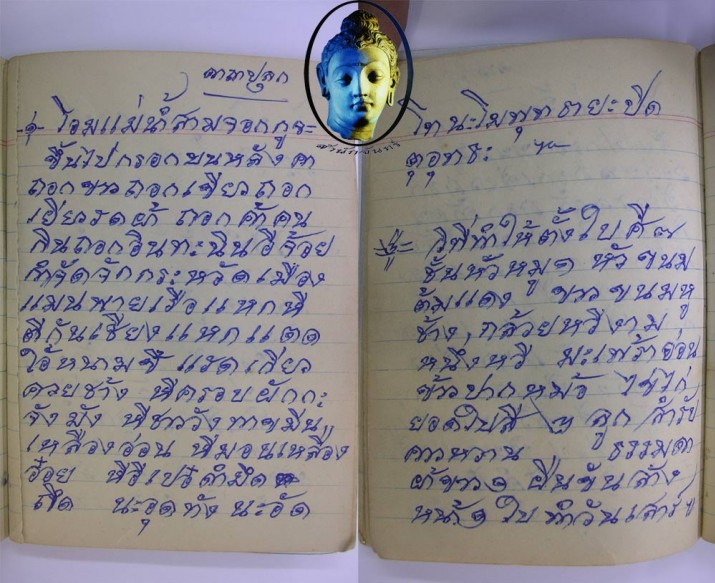 คาถาปลุก
โอมแม่น้ำสามจอกกูจะ
ขึ้นไปกรอกบนหลังคา
ถอกขาวถอกเขียวถอก
เยี่ยวรดผ้า ถอกค้าคน
กำจัดจักกระหวัดเมือง
แมนพายเรือแหกหี
ตีกันเชียงแหกแตด
ใอ้หนามชี แรดเกี่ยว
ควยช้าง หีครอบผักกะ
จังมัง หีชาววังทาขมิ้น
เหลืองอ่อน หีมอนเหลือง
นะอุดทัง นะอัด
โทนะโมพุทธายะปิด
ตุอุทธะ
วิธีทำให้ตั้งใบศี ๗
ชั้นหัวหมู ๑ หัว ขนม
ต้มแดง ขาว ขนมหู
ช้าง, กล้วยหวีงาม
หนึ่งหวี มะเพร้าอ่อน
ข้าวปากหม้อ ไข่ไก่
ยอดใบสี ๓ ลูก สำรับ
คาวหวาน ธรรมดา
ผ้าขาว ๑ ผืนขันล้าง
หน้า ๑ ใบ ทำวันเสาร์